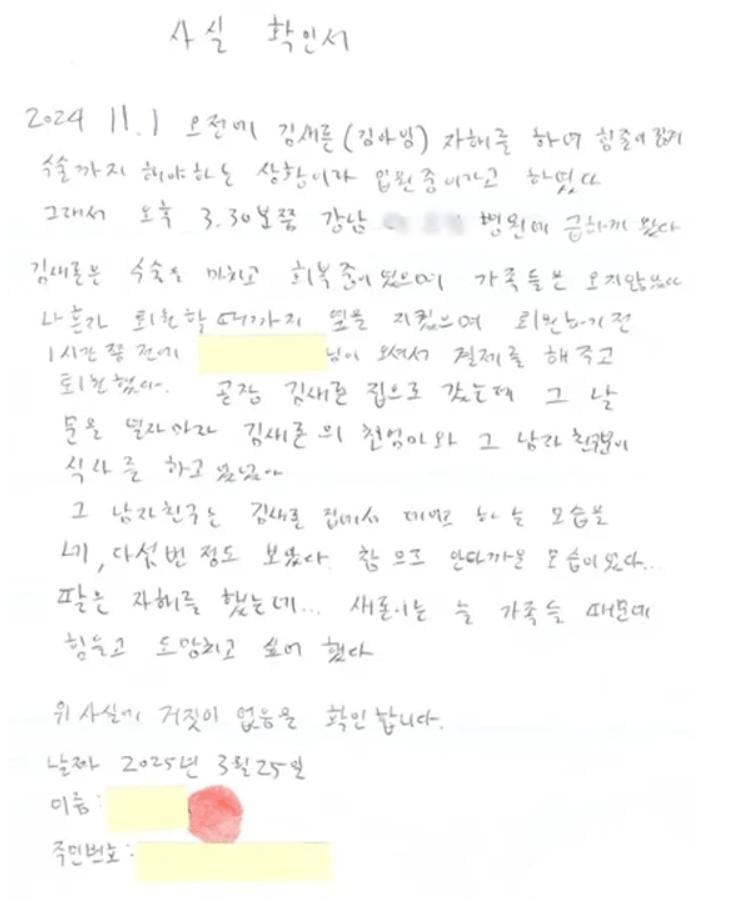 사실 확인서
2024 11.1 오전에 김새론(김아임) 자해를 하여 힘줄이 끊겨
수술까지 해야하는 상황이라 입원중이라고 하였다
그래서 오후 3.30분쯤 강남 병원에 급하게 왔다
김새론은 수술을 마치고 회복 중이 였으며 가족들은 오지않았다
나혼자 퇴원할때까지 옆을 지켰으며 퇴원하기전
1시간쯤 전에 님이 오셔서 결제를 해주고
퇴원했다. 곧장 김새론 집으로 갔는데 그 날
문을 열자마자 김새론의 친엄마와 그 남자 친구분이
식사를 하고 있었다
그 남자친구는 김새론 집에서 데이트 하는 모습을
네, 다섯번 정도 보았다. 참으로 안타까운 모습이였다...
딸은 자해를 했는데... 새론이는 늘 가족들 때문에
힘들고 도망치고 싶어 했다
위 사실에 거짓이 없음을 확인합니다.
날짜 2025년 3월25일
이름:
주민번호: